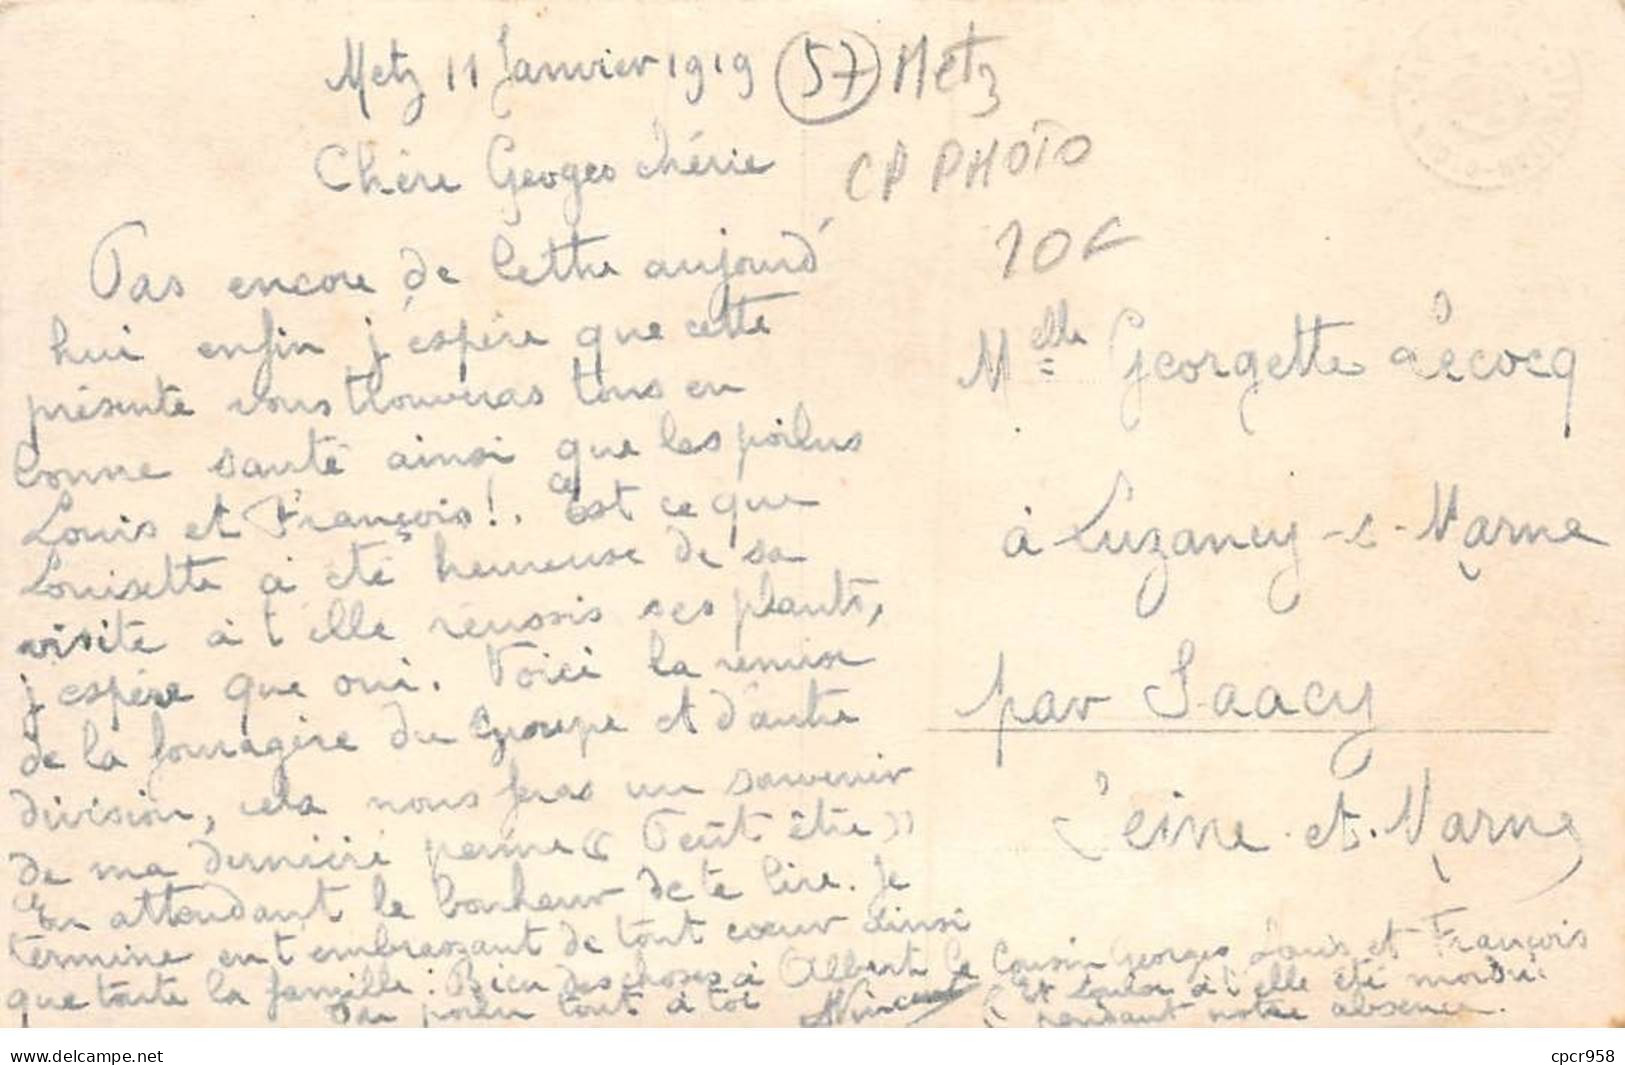 Metz 11 Janvier 1919 57 Metz
Chère Georges chérie
CP PHOTO
10€
Pas encore de lettre aujourd'
hui enfin j'espère que cette
présente vous trouveras tous en
bonne santé ainsi que les poilus
Louis et François!. Est ce que
Louisette a été heureuse de sa
visite a t'elle réussis ses plants,
j'espère que oui. Voici la remise
de la fourragère du Groupe et d'autre
division, cela nous feras un souvenir
de ma dernière perme « Peut être »
En attendant le bonheur de te lire. Je
termine en t'embrassant de tout cœur ainsi
que toute la famille: Bien des choses à Albert le Cousin Georges Louis et François
Ton poilu tout à toi Vincent
Et Loulou a t'elle été mordu
pendant notre absence.
Melle Georgette Lecocq
à Luzancy-s-Marne
par Saacy
Seine-et-Marne
cpcr958